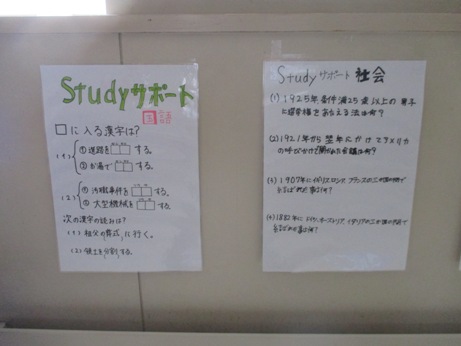 Studyサポート
国語
□に入る漢字は?
(1) ①道路を□□する。
②お湯で□□する。
(2) ①汚職事件を□□する。
②大型機械を□□する。
次の漢字の読みは?
(1) 祖父の葬式に行く。
(2) 領土を分割する。
Studyサポート 社会
(1) 1925年 条件満25歳以上の男子
に選挙権を与える法は何?
(2) 1921年から翌年にかけてアメリカ
の呼びかけで開かれた会議は何?
(3) 1907年にイギリス、ロシア、フランスの三か国の間で
結ばれた
(4) 1882年にドイツ、オーストリア、イタリアの三か国の間で